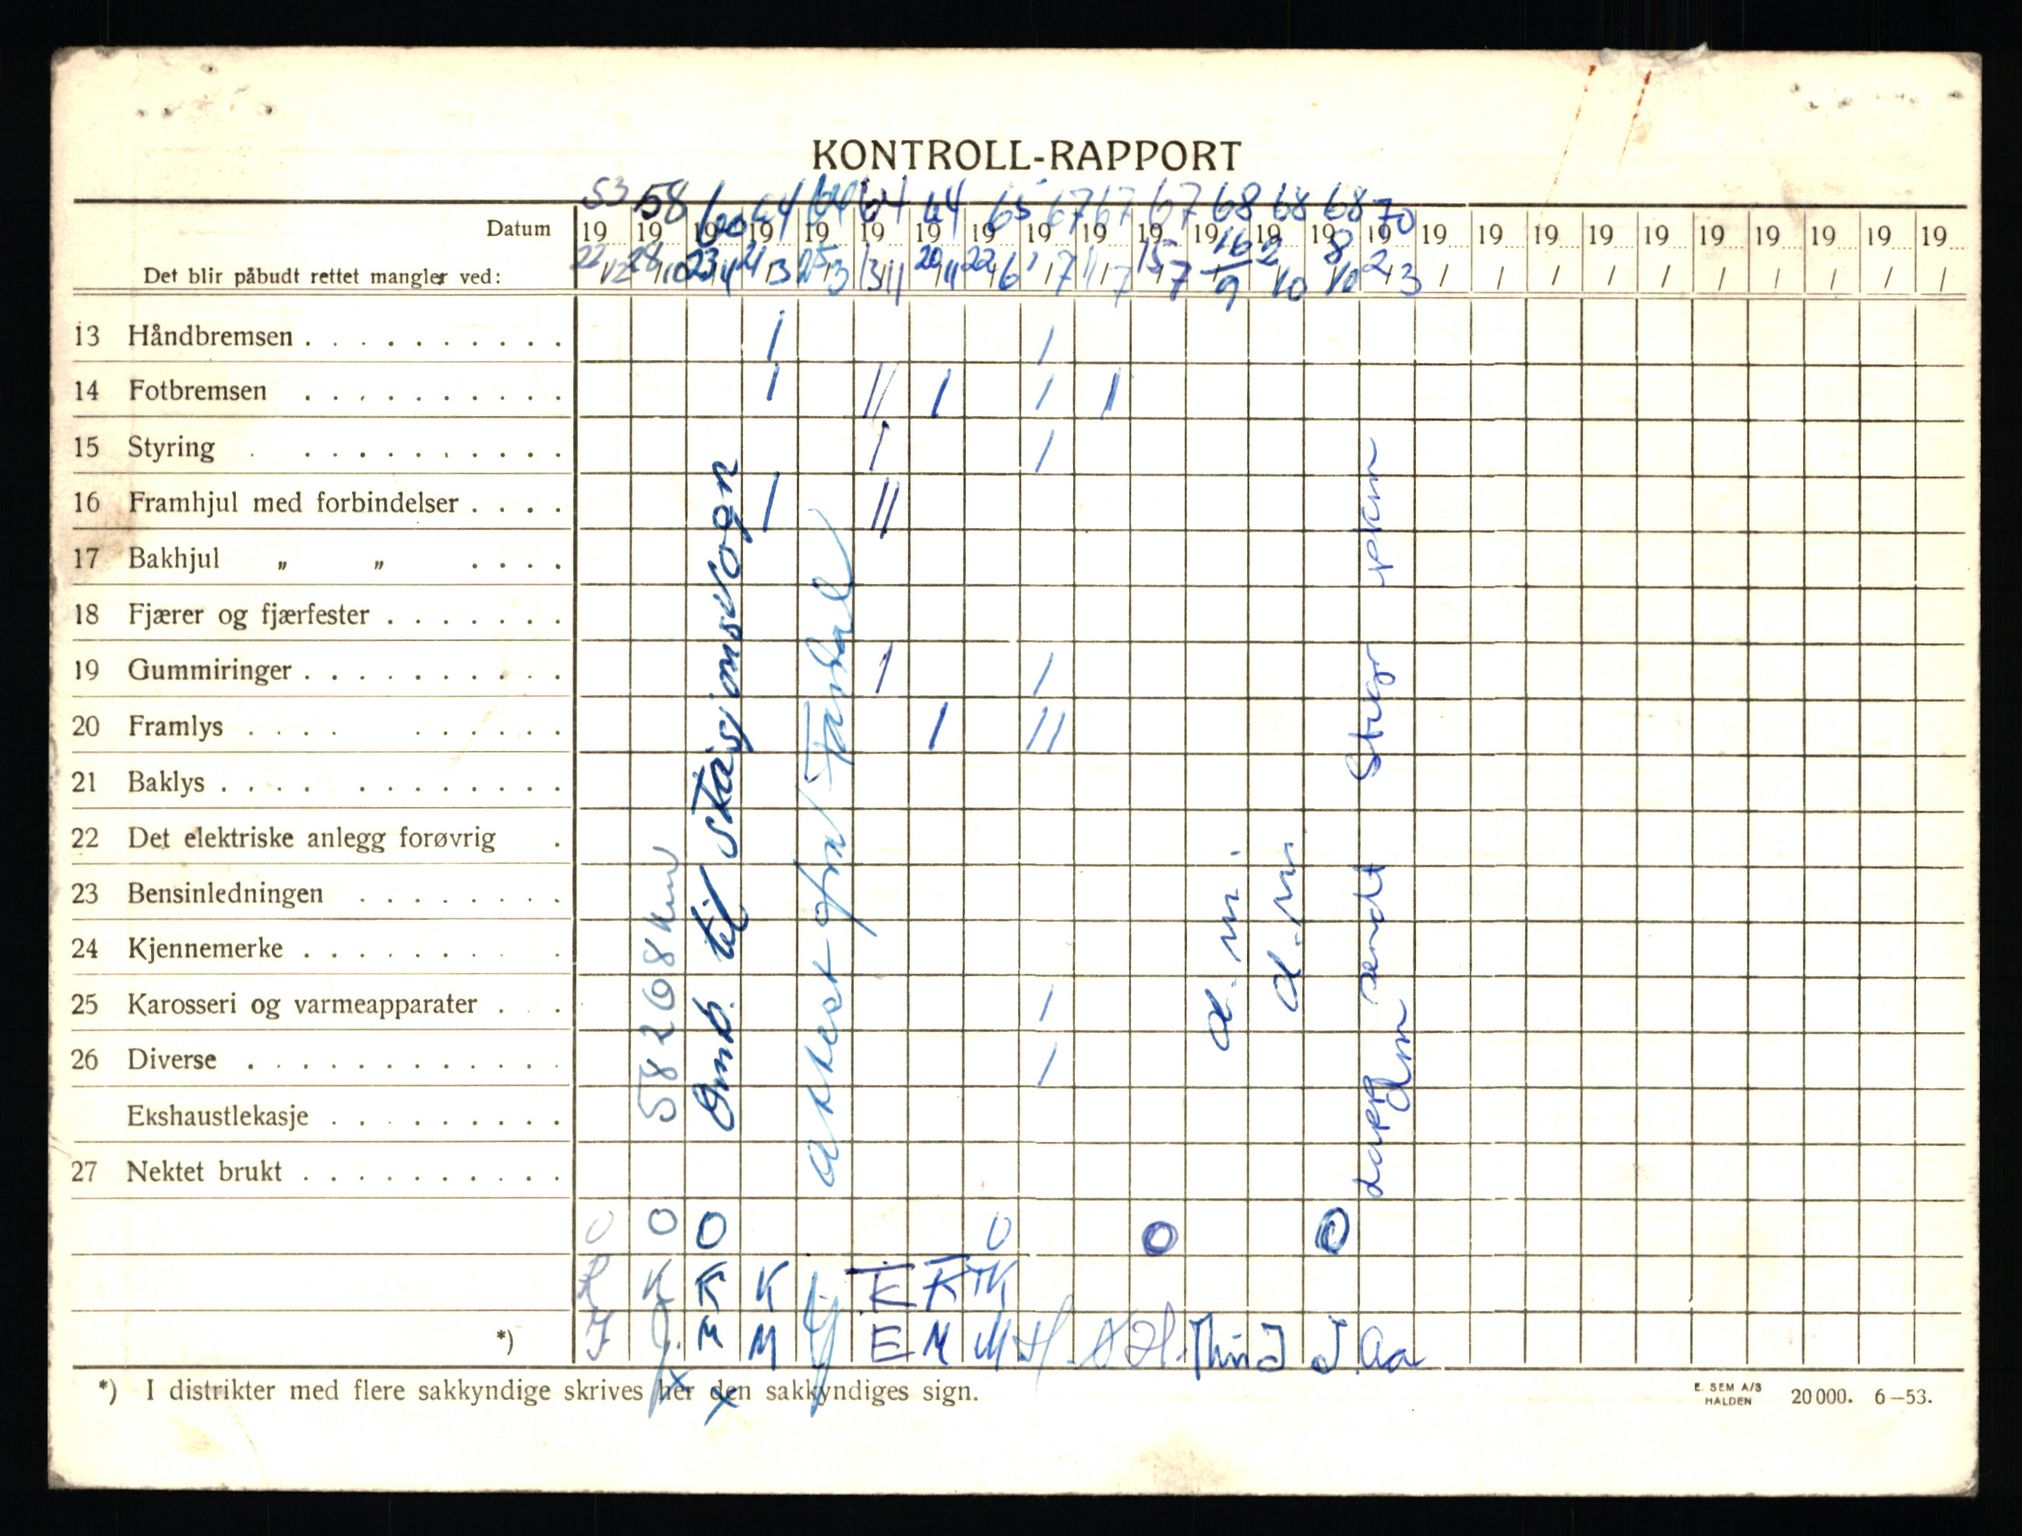 KONTROLL-RAPPORT
53 58 60 64 64 64 64 65 67 67 67 68 68 68 70
Datum 19 19 19 19 19 19 19 19 19 19 19 19 19 19 19 19 19 19 19 19 19 19 19 19 19
Det blir påbudt rettet mangler ved: 22/12 28/10 23/4 21/3 25/3 13/11 20/11 22/6 1/7 11/7 15/7 16/9 2/10 8/10 2/3 / / / / / / / / / /
13 Håndbremsen . . . . . . . . . . / /
14 Fotbremsen . . . . . . . . . . / // / / /
15 Styring . . . . . . . . . . / /
16 Framhjul med forbindelser . . . . / //
17 Bakhjul „ „ . . . .
18 Fjærer og fjærfester . . . . . . .
19 Gummiringer . . . . . . . . . . / /
20 Framlys . . . . . . . . . . / //
21 Baklys . . . . . . . . . . . .
22 Det elektriske anlegg forøvrig .
23 Bensinledningen . . . . . . . .
24 Kjennemerke . . . . . . . . . .
25 Karosseri og varmeapparater . . . /
26 Diverse . . . . . . . . . . . . /
Ekshaustlekasje . . . . . . . . .
27 Nektet brukt . . . . . . . . . .
58208 km
Omb. til stasjonsvogn
attest fra
a. m.
a. m.
sendt
0 0 0 0 0 0
R K K K K K K
*) J M M E M M H. H. J J. Aa
x x
*) I distrikter med flere sakkyndige skrives her den sakkyndiges sign.
E. SEM A/S
HALDEN
20 000. 6—53.